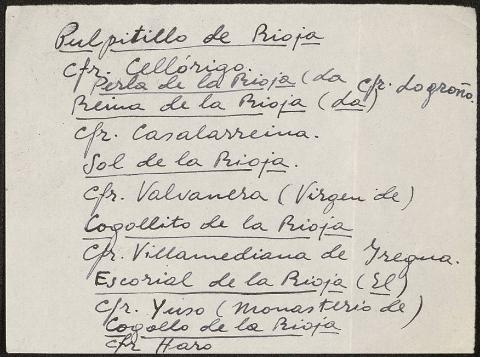 Pulpitillo de Rioja
cfr. Cellórigo.
Perla de la Rioja (La cfr. Logroño.
Reina de la Rioja (La)
cfr. Casalarreina.
Sol de la Rioja.
cfr. Valvanera (Virgen de)
Cogollito de la Rioja
cfr. Villamediana de Iregua.
Escorial de la Rioja (El)
cfr. Yuso (Monasterio de)
Cogollo de la Rioja
cfr Haro